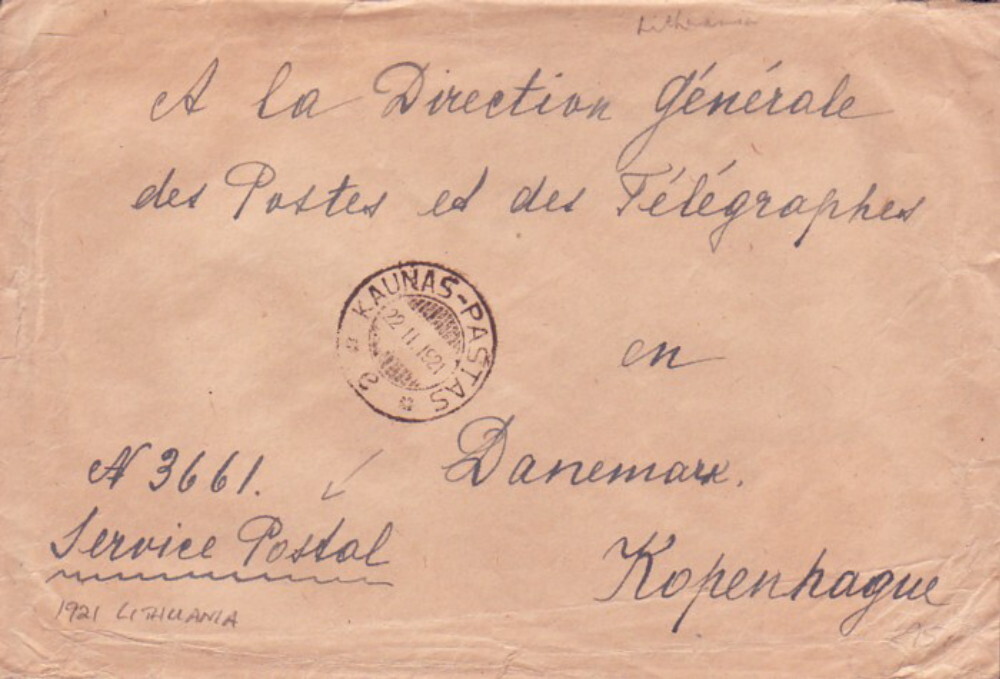 Lithuania
A la Direction Générale
des Postes et des Télégraphes
KAUNAS-PAŠTAS
22 11.1921
en
Danemark.
N 3661.
Service Postal
Kopenhague
1921 LITHUANIA